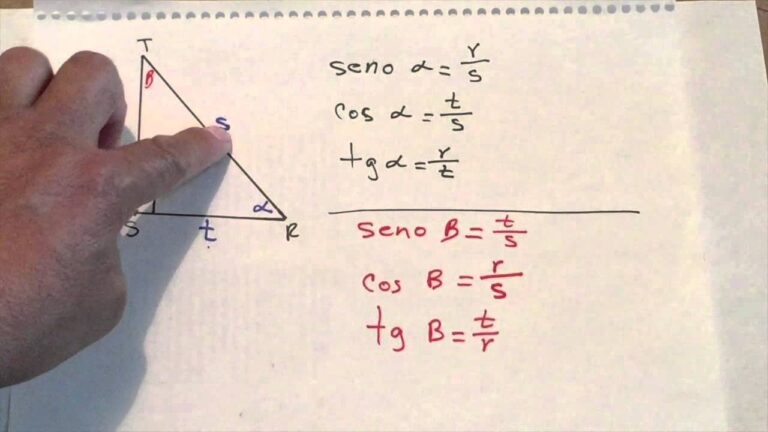 T
B
S
α
S
t
R
seno α = r/s
cos α = t/s
tg α = r/t
seno B = t/s
cos B = r/s
tg B = t/r